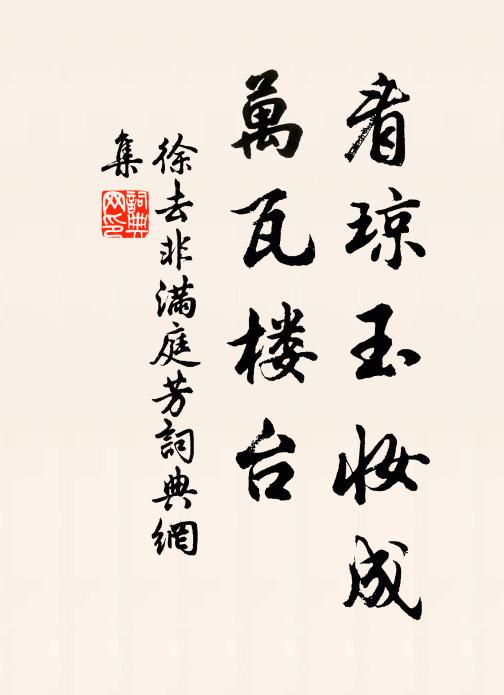 看琼玉妆成
萬瓦楼台
徐去非滿庭芳詞典網
集
詞典
网印